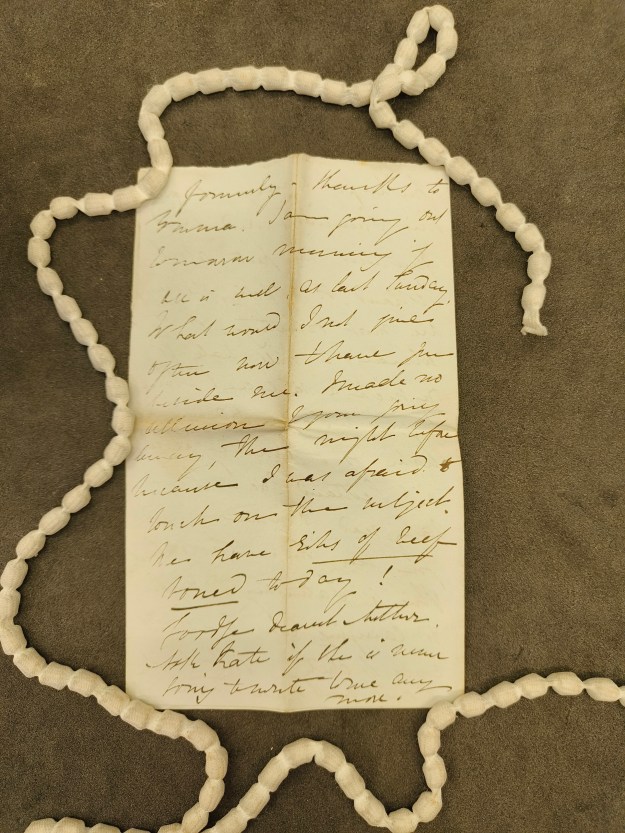 formerly - thanks to
Emma. I am going out
tomorrow morning if
all is well, as last Sunday.
What would I not give
often now to have you
beside me. I made no
allusion to your going
away, the night before
because I was afraid to
touch on the subject.
We have Ribs of beef
boned to day!
Goodbye dearest Mother.
Ask Kate if she is never
going to write to me any
more.